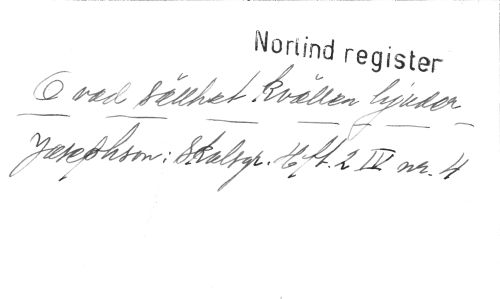 Norlind register
O vad sällhet kvällen bjuder
Josephson: Skalsgr. Hft. 2 IV nr. 4